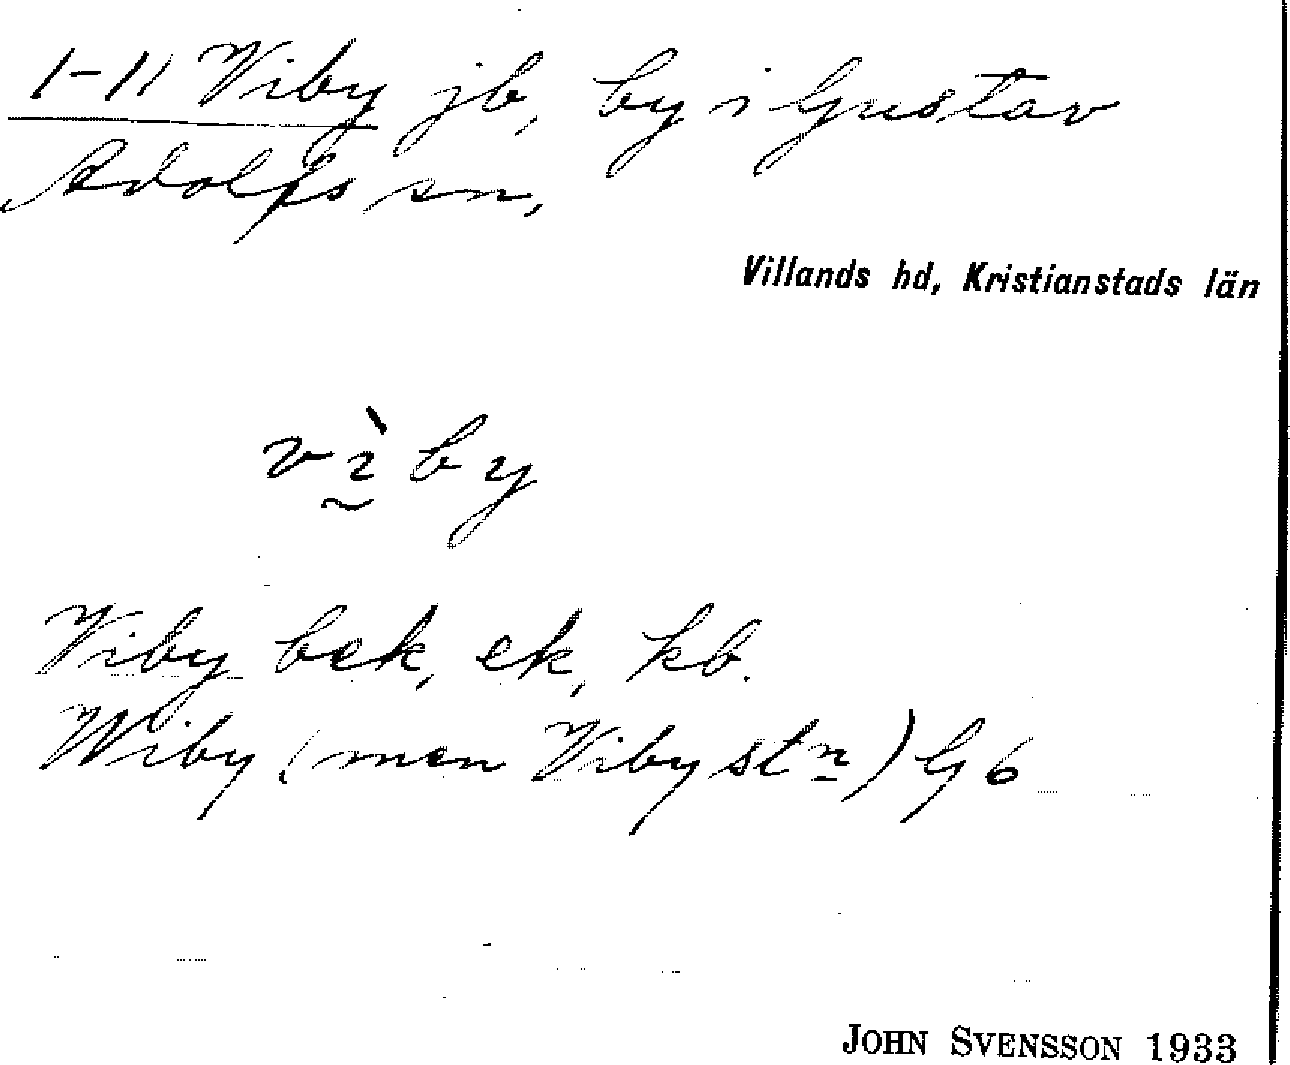 1-11 Viby jb, by i Gustav
Adolfs sn,
Villands hd, Kristianstads län
vḭ̀by
Viby bek, ek, kb.
Wiby (men Viby stn) G6
JOHN SVENSSON 1933